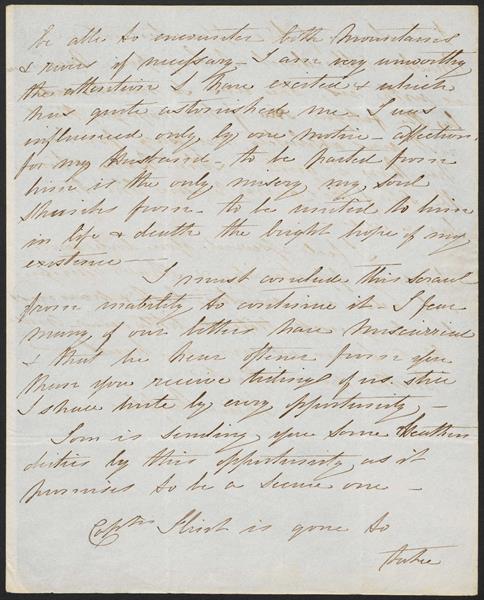 be able to encounter both mountains
& rivers if necessary - I am very unworthy
the attention I have excited & which
has quite astonished me I was
influenced only by one motive - affection
for my Husband - to be parted from
him is the only misery my soul
shrinks from - to be united to him
in life & death the bright hope of my
existence -
I must conclude this scrawl
from inability to continue it - I fear
many of our letters have miscarried
& that we hear oftener from you
than you receive tidings of us. still
I shall write by every opportunity -
Tom is sending you some Heathen
deities by this opportunity as it
promises to be a secure one -
Captn is gone to